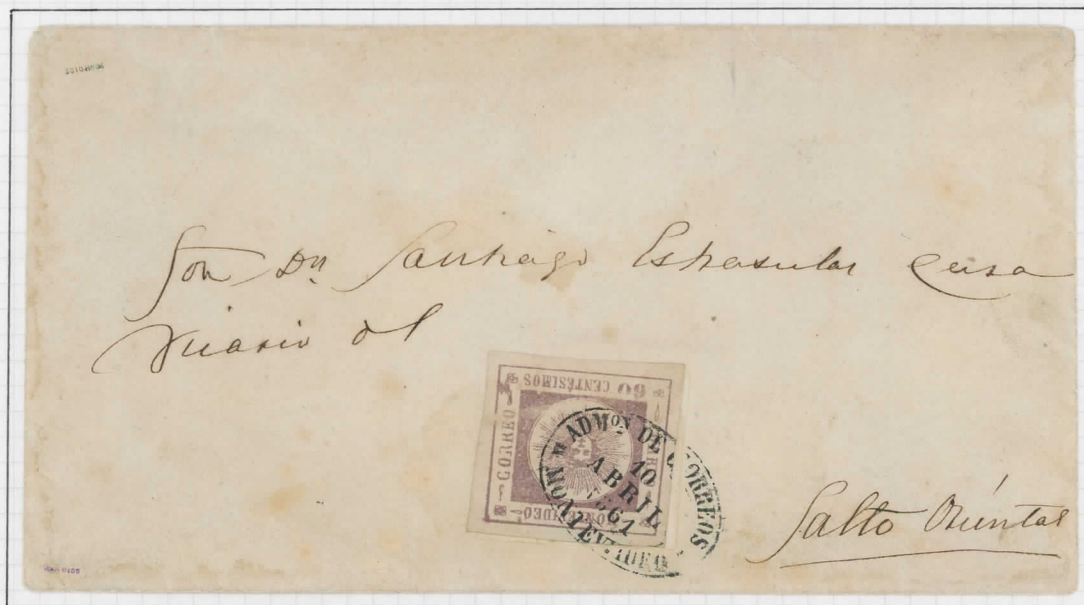 Son Dn Santiago Estrasulas Cura
Vicario del
60 CENTÉSIMOS
CORREO
MONTEVIDEO
ADMON DE CORREOS
10
ABRIL
1861
MONTEVIDEO
Salto Oriental